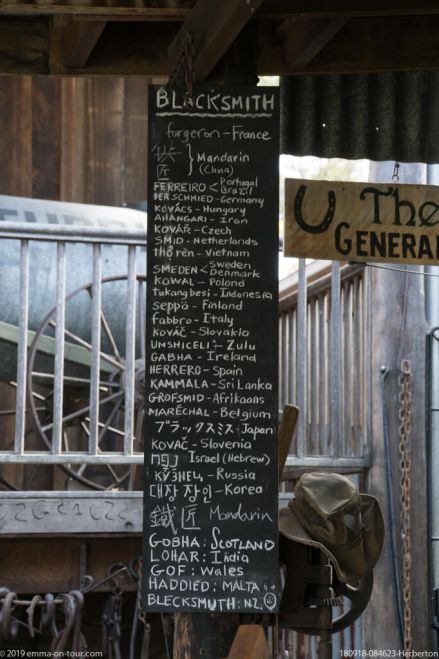 BLACKSMITH
forgeron - France
铁
匠 } Mandarin (China)
FERREIRO < Portugal
Brazil
DER SCHMIED - Germany
KOVÁCS - Hungary
AHANGARI - Iran
KOVÁŘ - Czech
SMID - Netherlands
thợ rèn - Vietnam
SMEDEN < Sweden
Denmark
KOWAL - Poland
tukang besi - Indonesia
Seppö - Finland
fabbro - Italy
KOVÁČ - Slovakia
UMSHICELI - Zulu
GABHA - Ireland
HERRERO - Spain
KAMMALA - Sri Lanka
GROFSMID - Afrikaans
MARÉCHAL - Belgium
ブラックスミス - Japan
KOVAČ - Slovenia
Israel (Hebrew)
КУЗНЕЦ - Russia
대장장인 - Korea
鐵匠 Mandarin
GOBHA: SCOTLAND
LOHAR: India
GOF: Wales
HADDIED: MALTA
BLECKSMUTH: N.Z.
U The
GENERAL
2G4C6C2
© 2019 emma-on-tour.com
180918-084623-Herberton